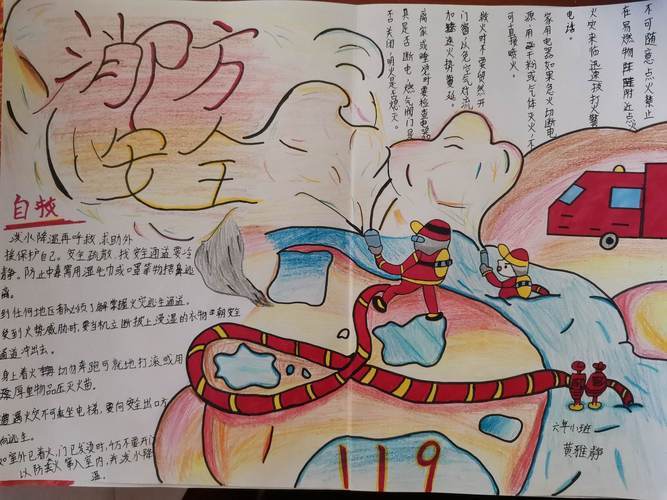 消防
安全
自救
浇水降温再呼救 求助外
援保护自己。安全疏散,找安全通道要冷
静。防止中毒需用湿毛巾或口罩等物捂鼻逃
离。
到任何地区都必须了解掌握火灾逃生通道。
受到火势威胁时,要当机立断披上浸湿的衣物
通道冲出去。
身上着火,切勿奔跑可就地打滚或用
厚重物品压灭火苗。
遇火灾不可乘坐电梯,要向安全出口方
向逃生。
如室外已着火,门已发烫时,千万不要开门
以防大火窜入室内,再泼水降
温
不可随意点火禁止
在易燃物附近点火
火灾来临迅速拨打火警
电话。
家用电器如果急火切断电
源,用干粉或气体灭火,不
可直接喷火。
救火时不要贸然开
门窗以免空气对流
加速火势蔓延。
离家或睡觉时要检查电器
具是否断电,燃气阀门是
否关闭,明火是否熄灭。
119
六年小班
黄雅静